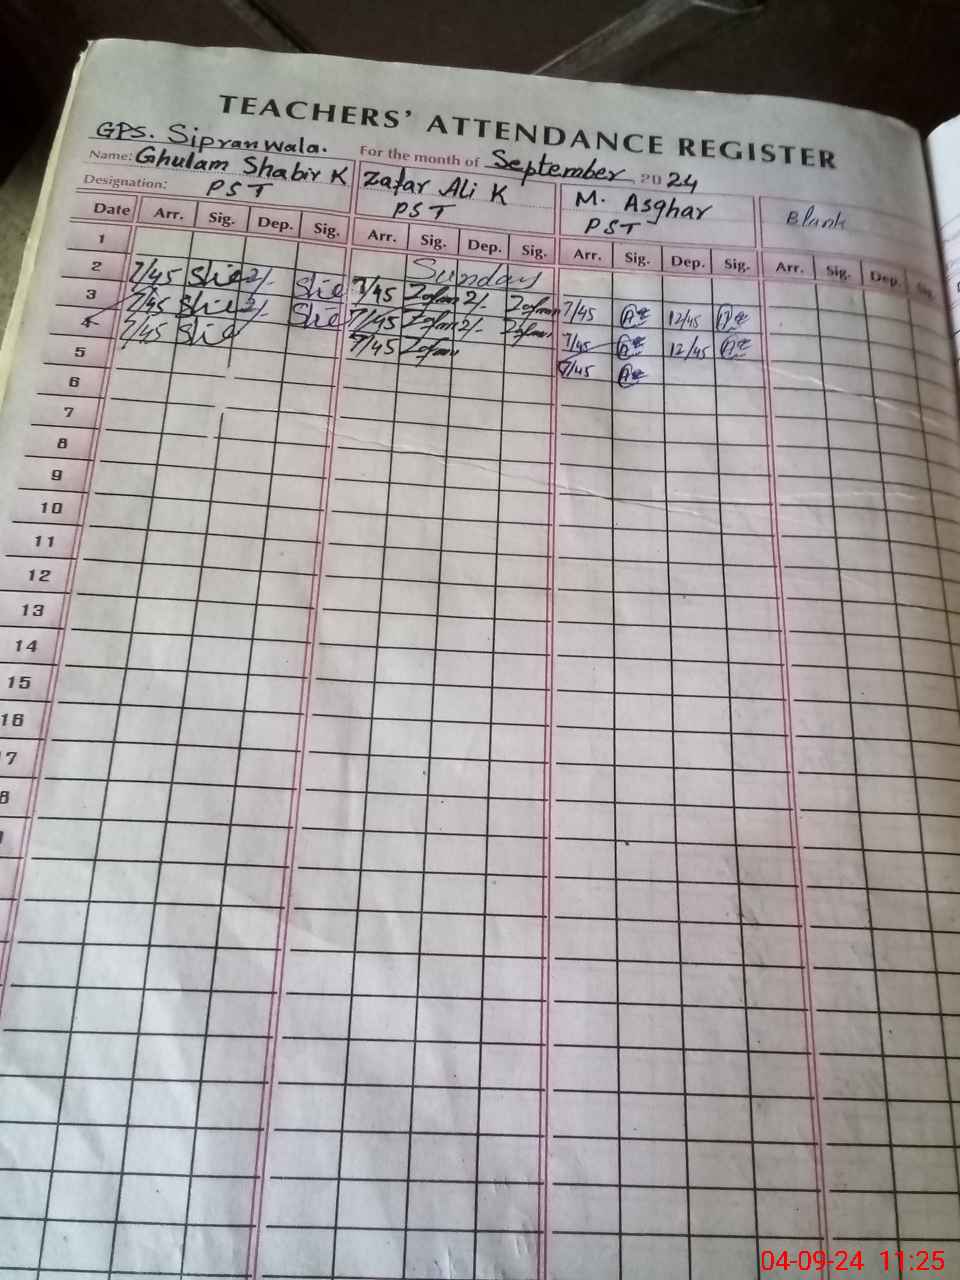 TEACHERS' ATTENDANCE REGISTER
GPS. Sipranwala.
For the month of September 2024
Name: Ghulam Shabir K Zafar Ali K M. Asghar Blank
Designation: PST PST PST
Date Arr. Sig. Dep. Sig. Arr. Sig. Dep. Sig. Arr. Sig. Dep. Sig. Arr. Sig. Dep. Sig.
1 Sunday
2 7/45 2/- 7/45 2/- 7/45 12/45
3 7/45 2/- 7/45 2/- 7/45 12/45
4 7/45 7/45 7/45
5
6
7
8
9
10
11
12
13
14
15
16
17
8
04-09-24 11:25